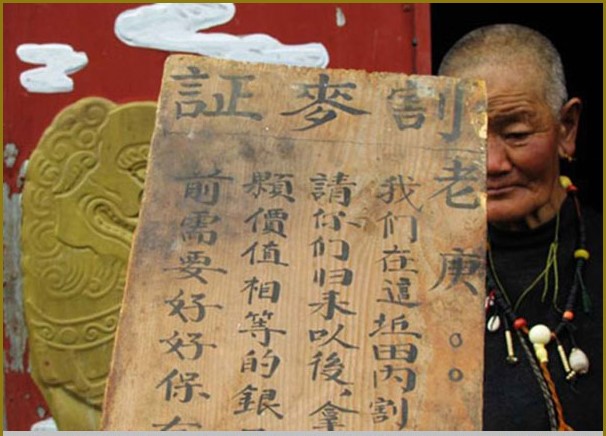 割麥証
老庚。。
我们在這坵田内割
請你们归来以後、拿
顆價值相等的銀
前需要好好保